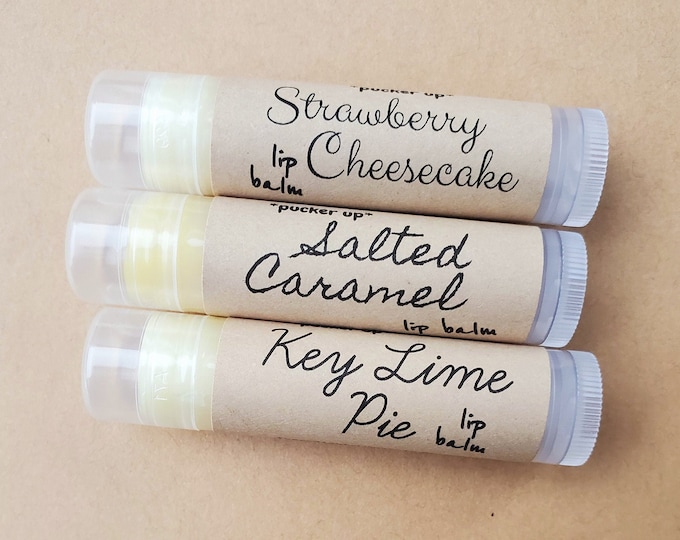 *pucker up*
Strawberry
Cheesecake
lip
balm
*pucker up*
Salted
Caramel
lip balm
Key Lime
Pie
lip
balm